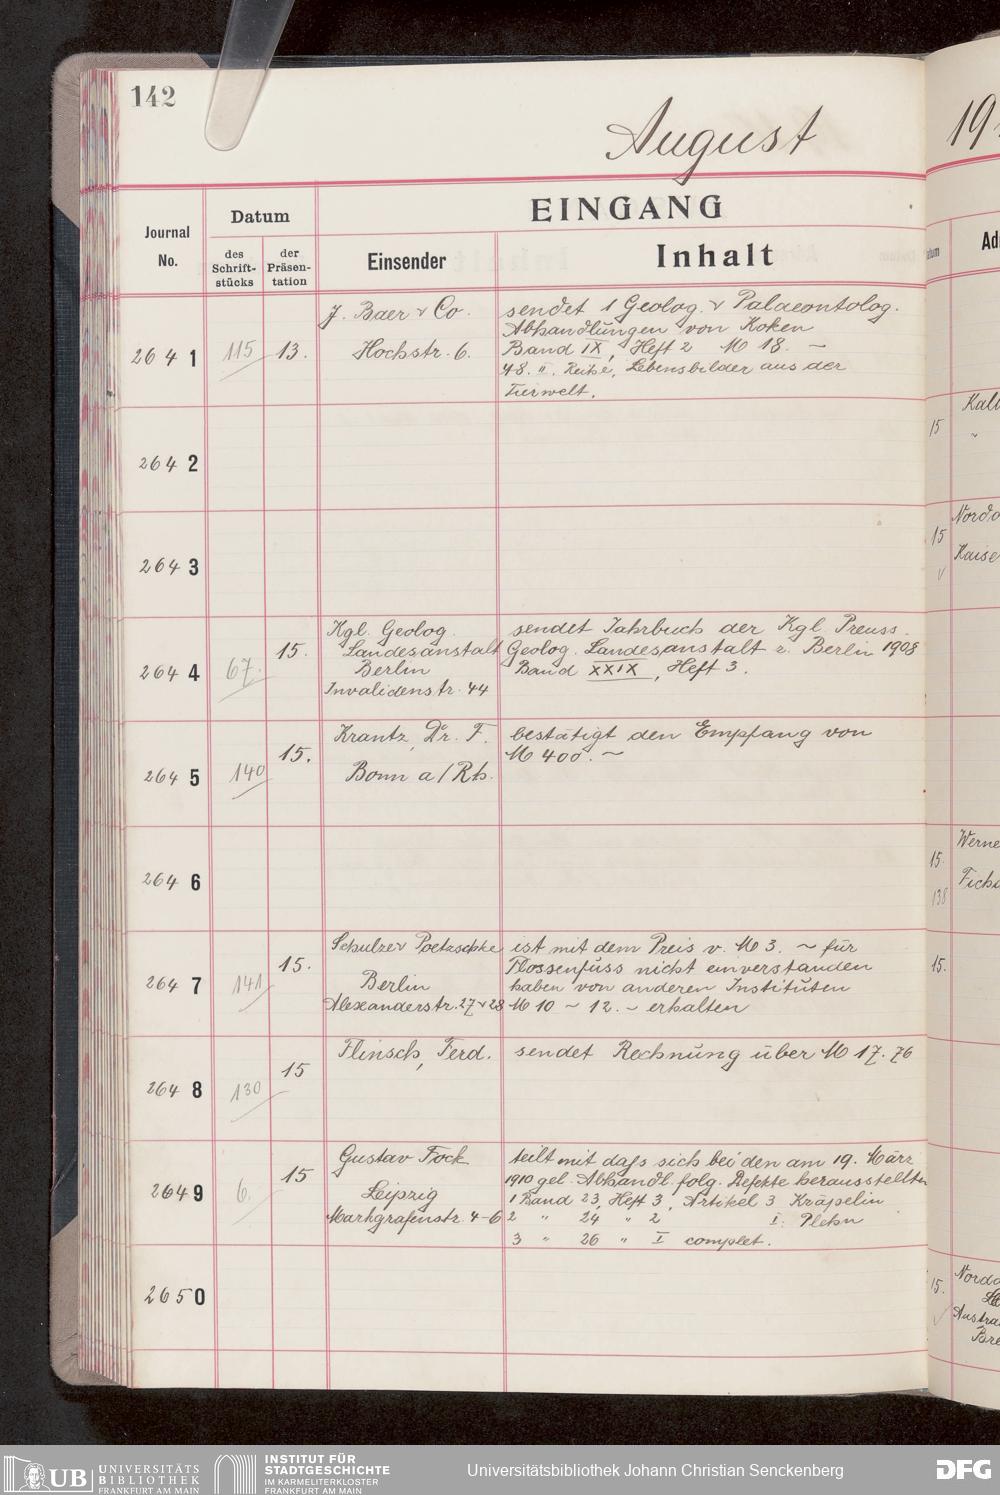 142
August
19
EINGANG
Journal
No.
Datum
des
Schrift-
stücks
der
Präsen-
tation
Einsender
Inhalt
2641
115
13.
J. Baer & Co.
Hochstr. 6.
sendet 1 Geolog. & Palaeontolog.
Abhandlungen von Koken
Band IX, Heft 2 M 18. -
48. II. Reihe, Lebensbilder aus der
Tierwelt.
2642
2643
2644
67.
15.
Kgl. Geolog.
Landesanstalt
Berlin
Invalidenstr. 44
sendet Jahrbuch der Kgl. Preuss.
Geolog. Landesanstalt z. Berlin 1908
Band XXIX, Heft 3.
2645
140
15.
Krantz, Dr. F.
Bonn a/Rh.
bestätigt den Empfang von
M 400. ~
2646
2647
141
15.
Schulze & Poetzschke
Berlin
Alexanderstr. 27 & 28
ist mit dem Preis v. M 3. ~ für
Flossenfuss nicht einverstanden
haben von anderen Instituten
M 10 ~ 12. ~ erhalten
2648
130
15
Flinsch, Ferd.
sendet Rechnung über M 17.76
2649
6.
15
Gustav Fock
Leipzig
Markgrafenstr. 4-6
teilt mit dass sich bei den am 19. März
1910 gel. Abhandl. folg. Defekte herausstellten
1 Band 23, Heft 3, Artikel 3 Kräpelin
2 " 24 " 2 I. Plehn
3 " 26 " I complet.
2650
15
15
15.
138
15.
15.
UB UNIVERSITÄTS
BIBLIOTHEK
FRANKFURT AM MAIN
INSTITUT FÜR
STADTGESCHICHTE
IM KARMELITERKLOSTER
FRANKFURT AM MAIN
Universitätsbibliothek Johann Christian Senckenberg
DFG